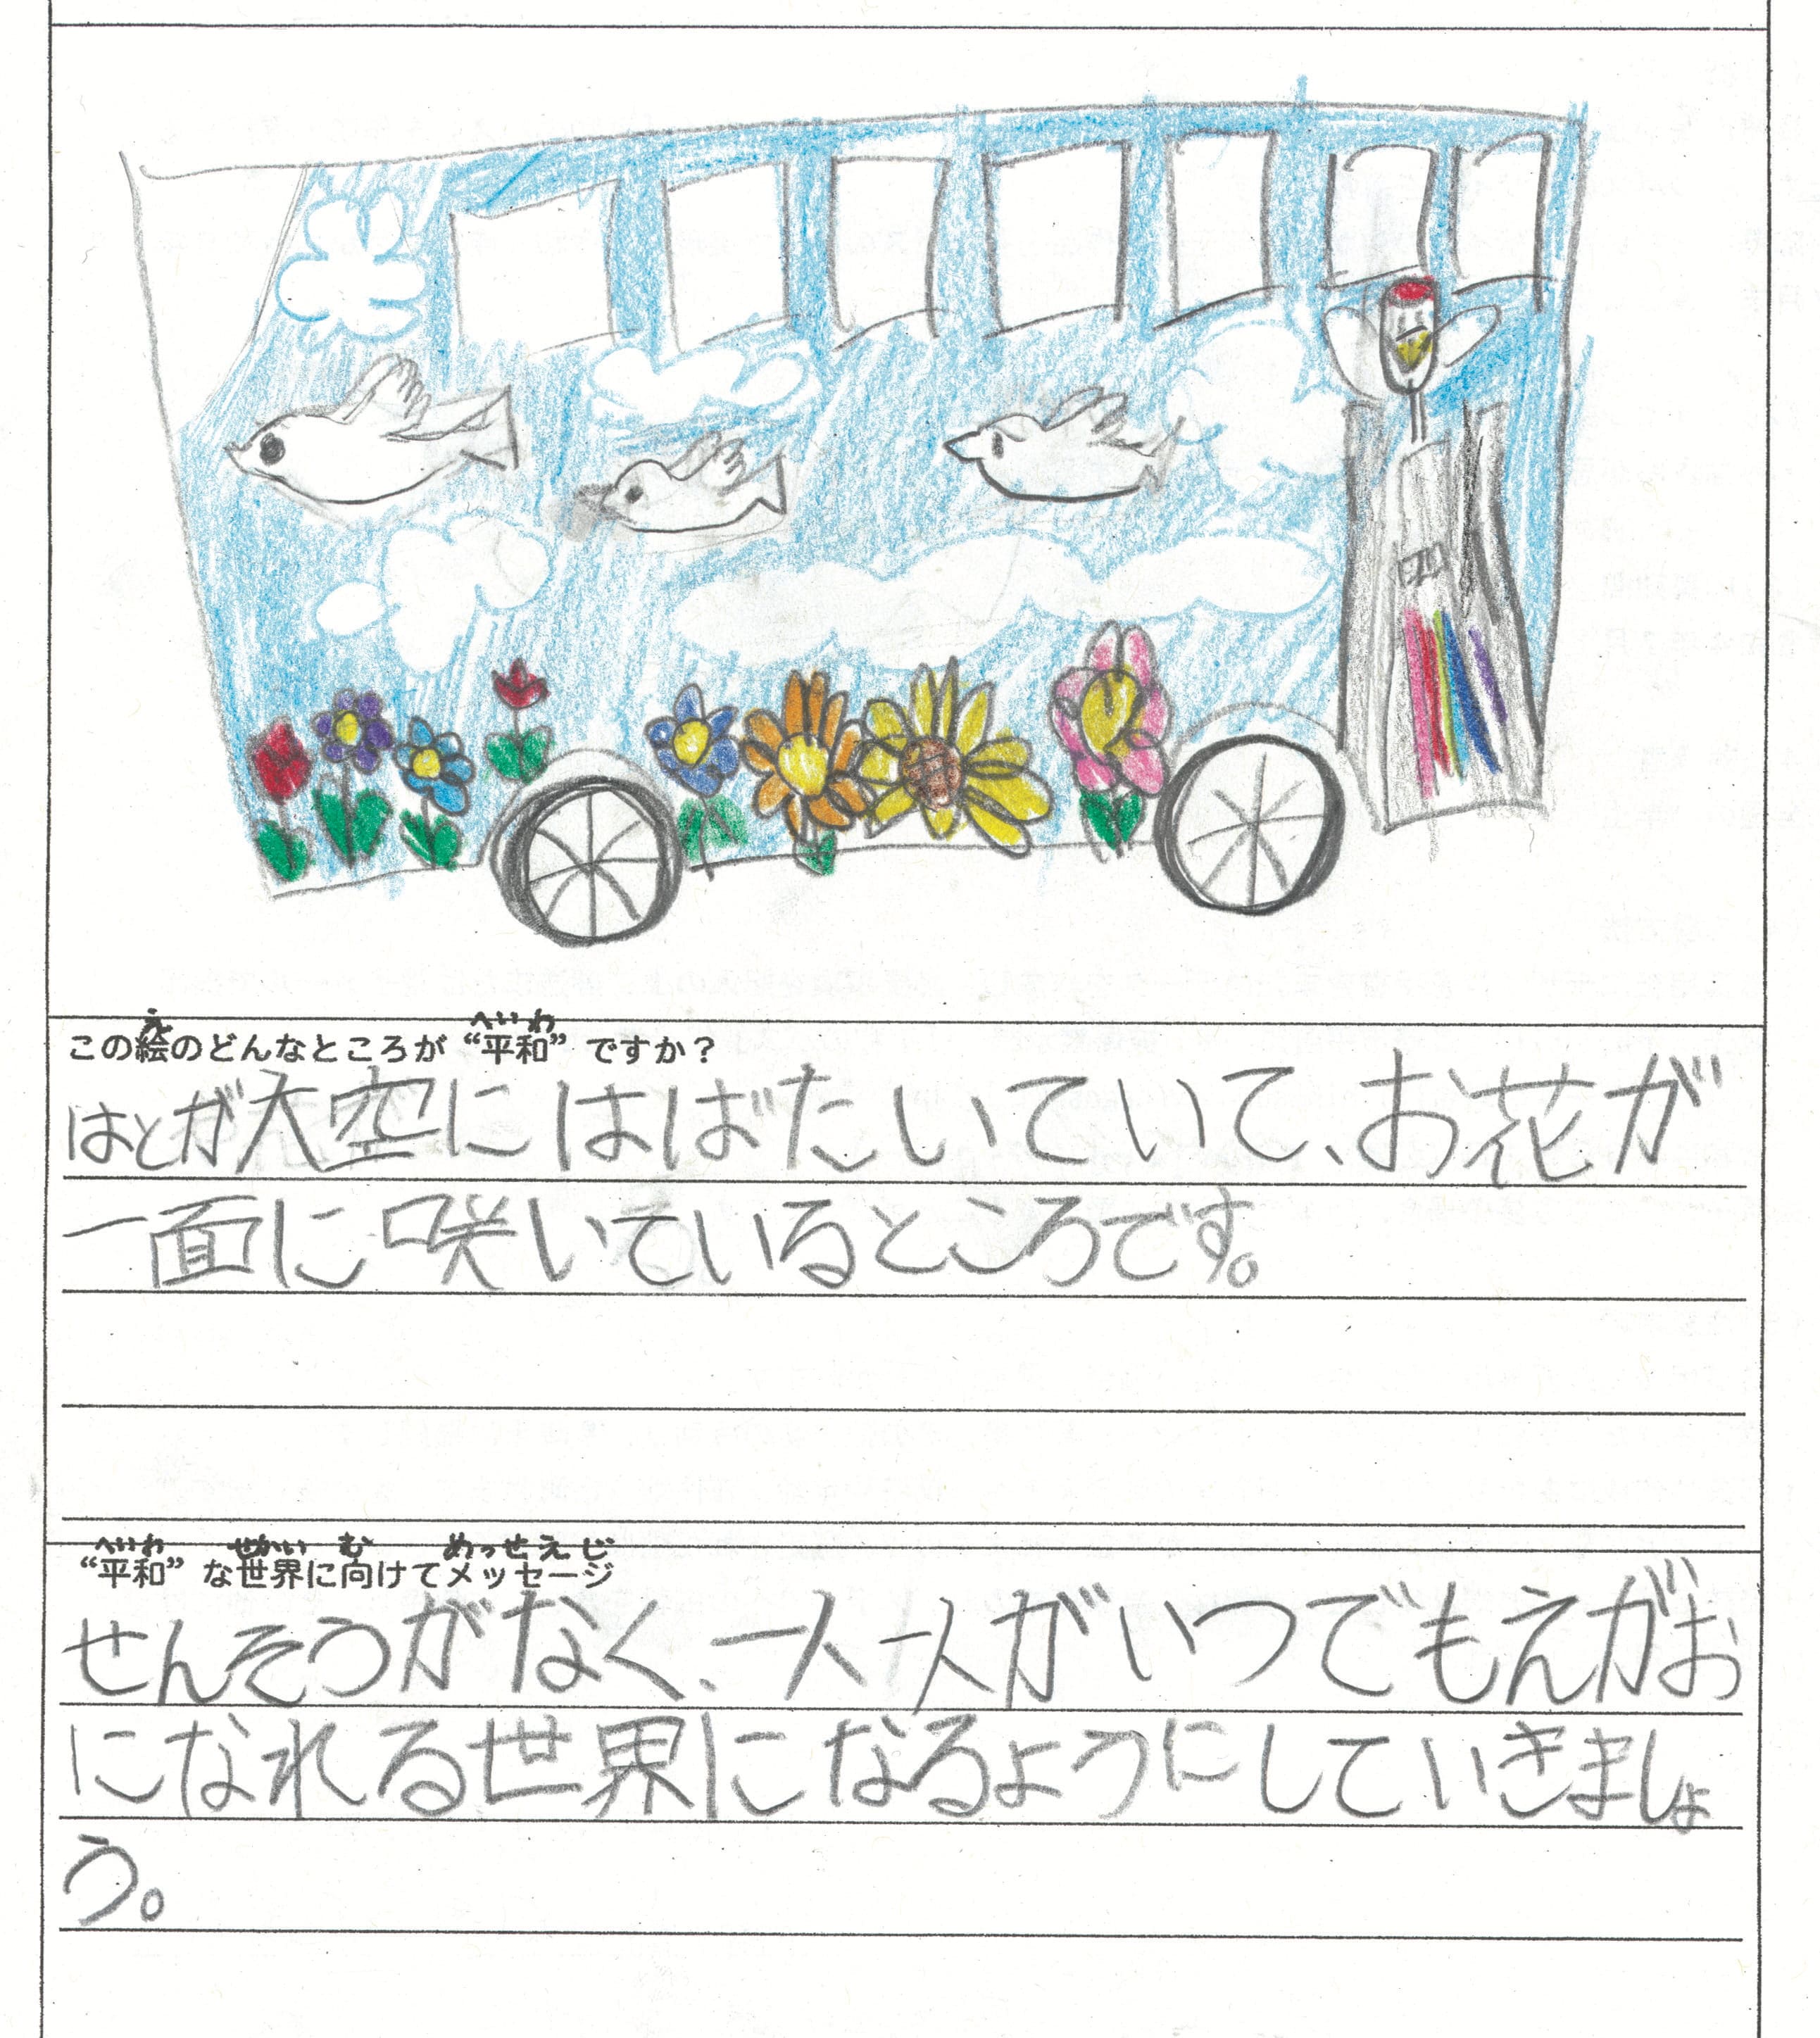 この絵のどんなところが“平和”ですか？
はとが大空にはばたいていて、お花が
一面に咲いているところです。
“平和”な世界に向けてメッセージ
せんそうがなく、一人一人がいつでもえがお
になれる世界になるようにしていきましょ
う。